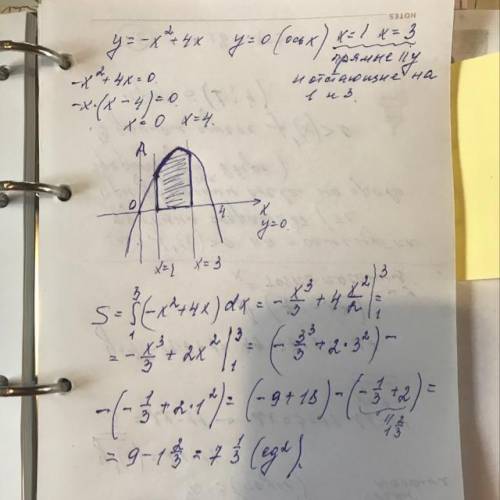 NOTES
y = -x² + 4x   y = 0 (ось x)   x = 1   x = 3
прямые || y
-x² + 4x = 0
и отстающие на
-x·(x - 4) = 0
1 и 3.
x = 0   x = 4.
0   4   x
y = 0.
x = 1   x = 3
S = ∫₁³ (-x² + 4x) dx = -x³/3 + 4 x²/2 |₁³ =
= -x³/3 + 2x² |₁³ = (-3³/3 + 2·3²) -
-(-1/3 + 2·1²) = (-9 + 18) - (-1/3 + 2) =
1 2/3
= 9 - 1 2/3 = 7 1/3 (ед²).